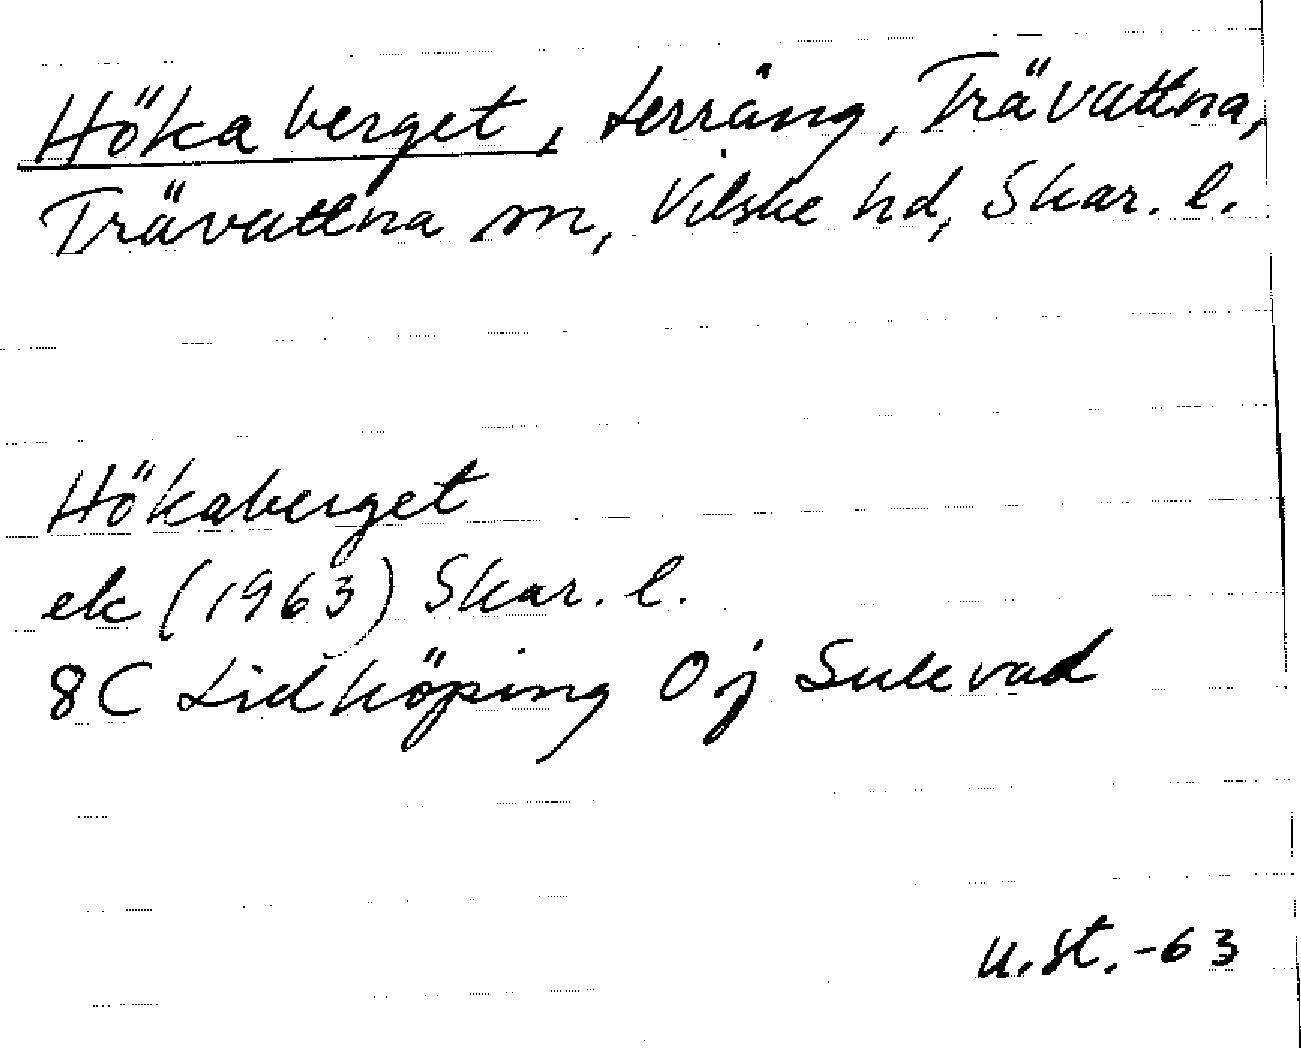 Hökaberget, terräng, Trävattna,
Trävattna sn, Vilske hd, Skar. l.
Hökaberget
ek (1963) Skar. l.
8C Lidköping 0j Sulevad
u.st. -63